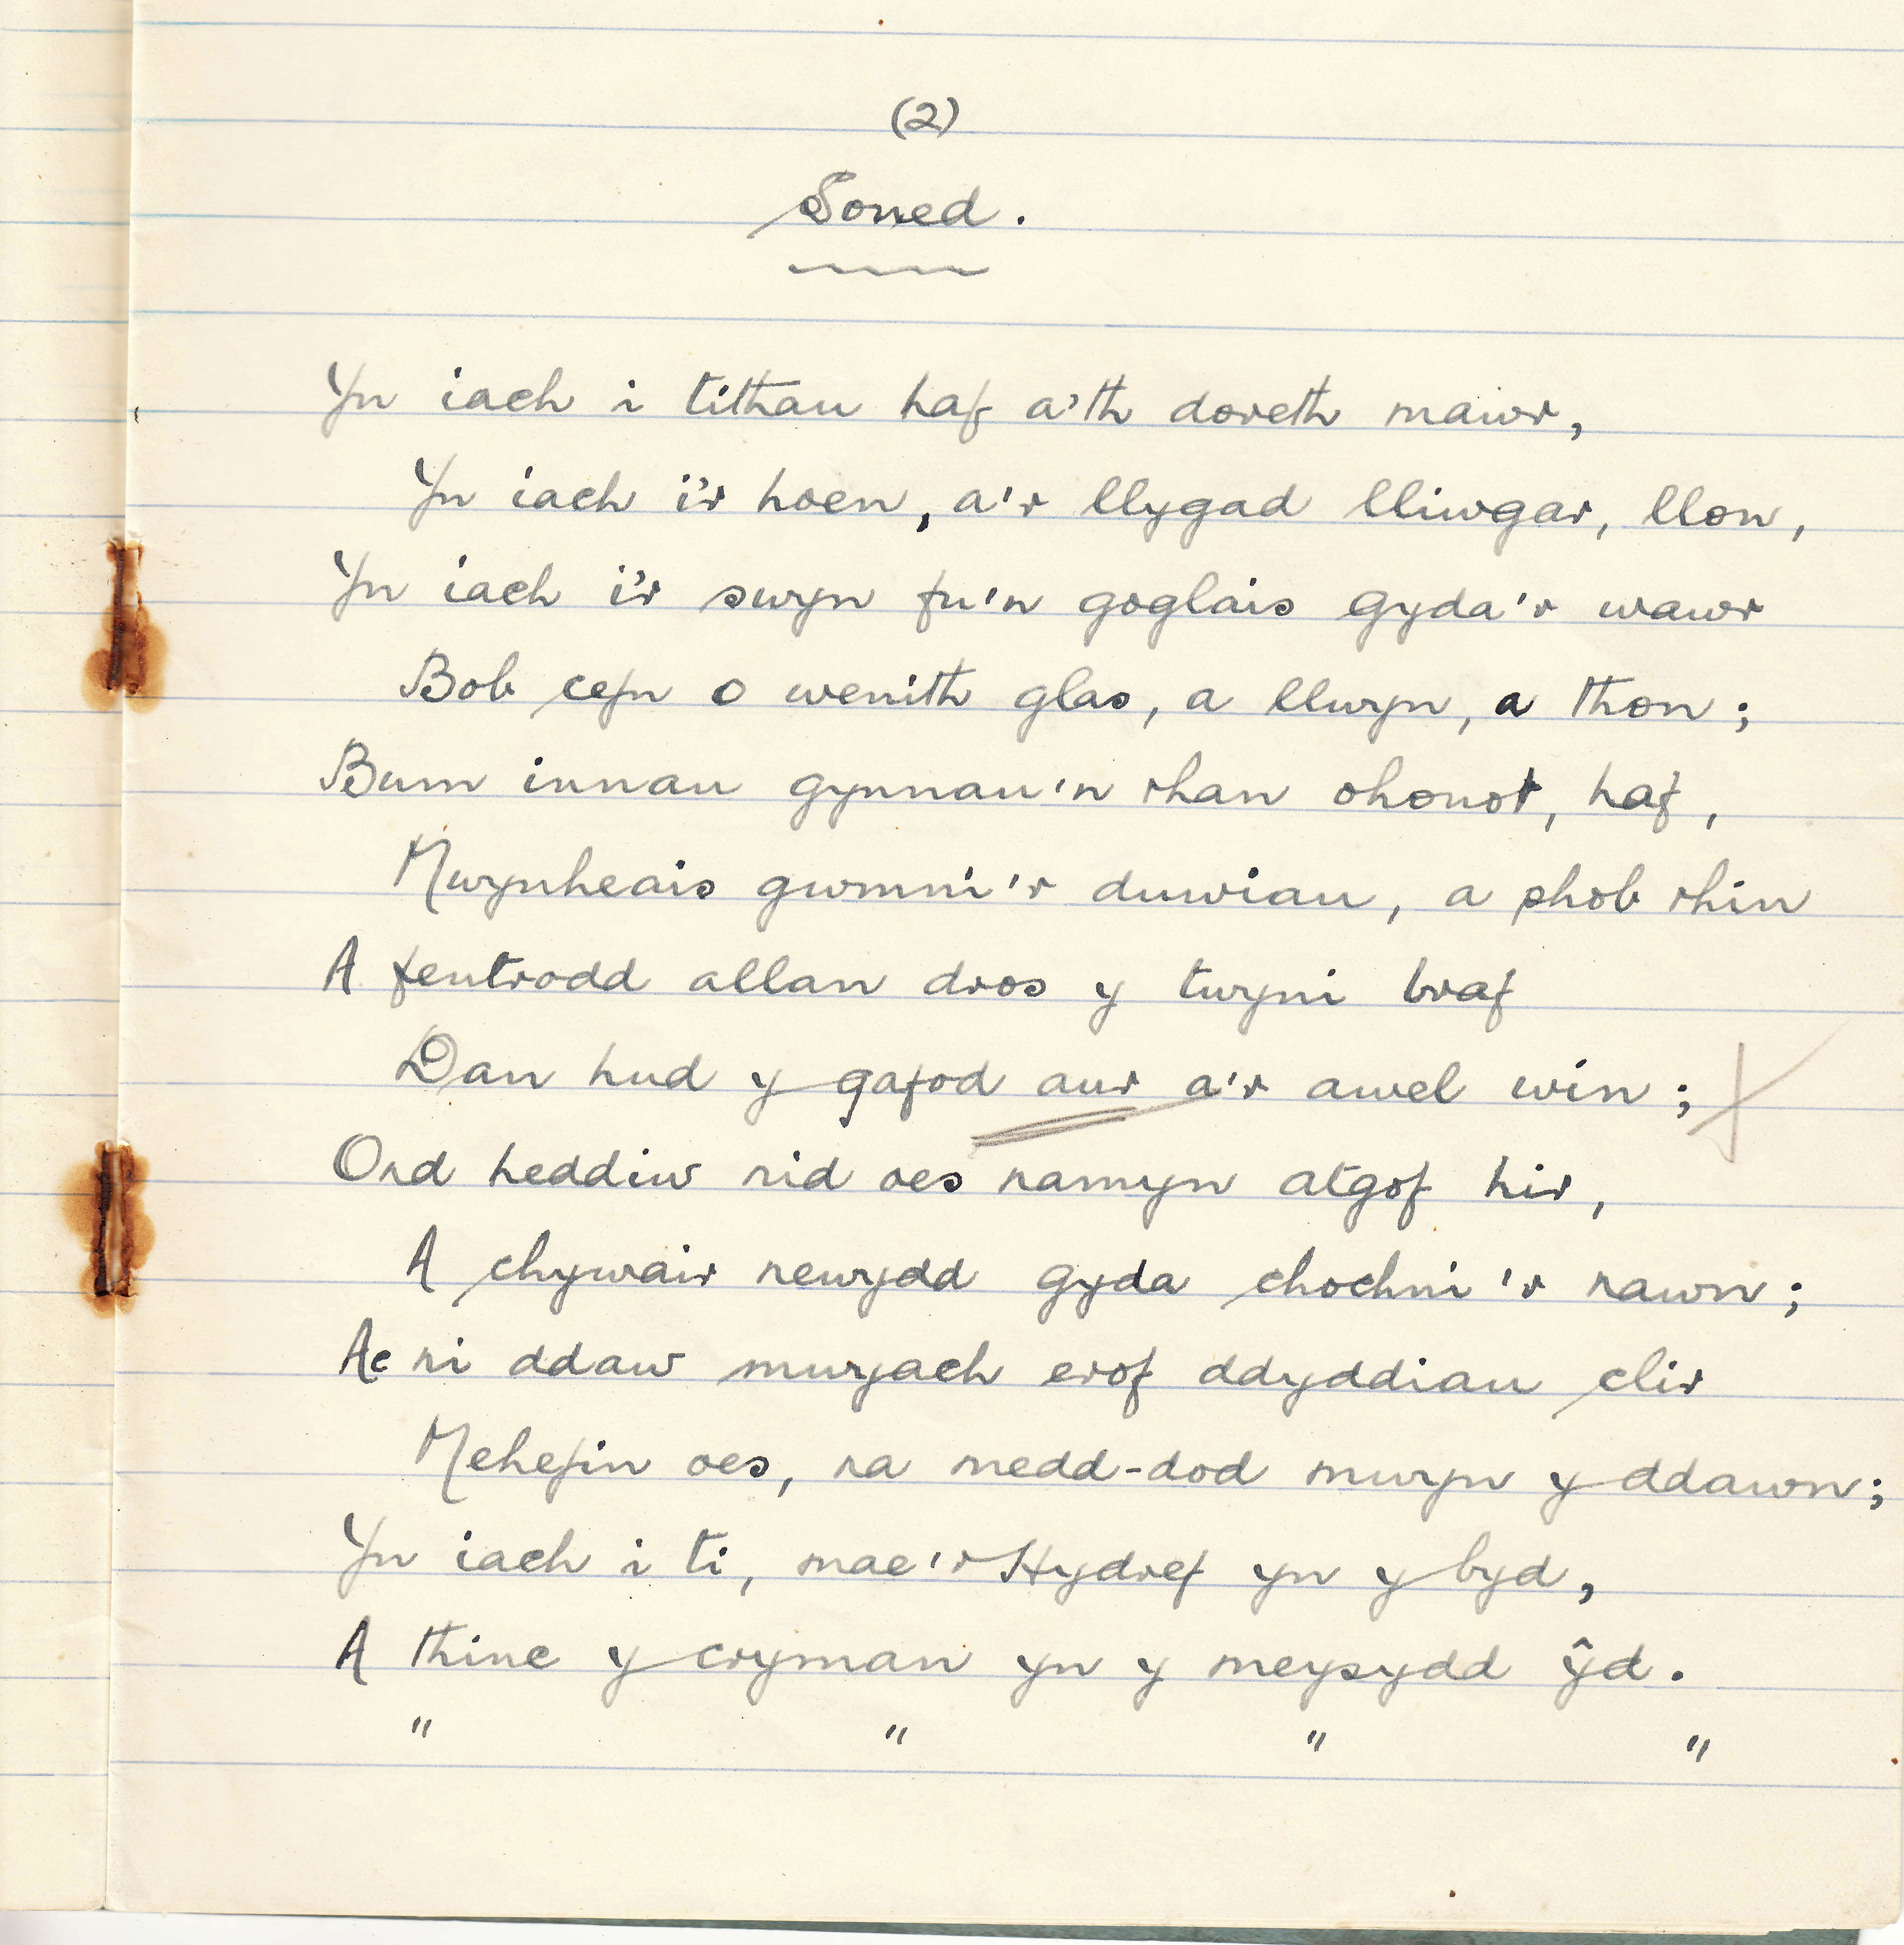 (2)
Soned.
Yn iach i tithau haf a'th doreth mawr,
Yn iach i'r hoen, a'r llygad lliwgar, llon,
Yn iach i'r swyn fu'n goglais gyda'r wawr
Bob cefn o wenith glas, a llwyn, a thon;
Bum innau gynnau'n rhan ohonot, haf,
Mwynheais gwmni'r duwiau, a phob rhin
A fentrodd allan dros y twyni braf
Dan hud y gafod aur a'r awel win;
Ond heddiw nid oes namyn atgof hir,
A chywair newydd gyda chochni'r nawn;
Ac ni ddaw mwyach erof ddyddiau clir
Mehefin oes, na medd-dod mwyn y ddawn;
Yn iach i ti, mae'r Hydref yn y byd,
A thinc y cryman yn y meysydd ŷd.
" " " "